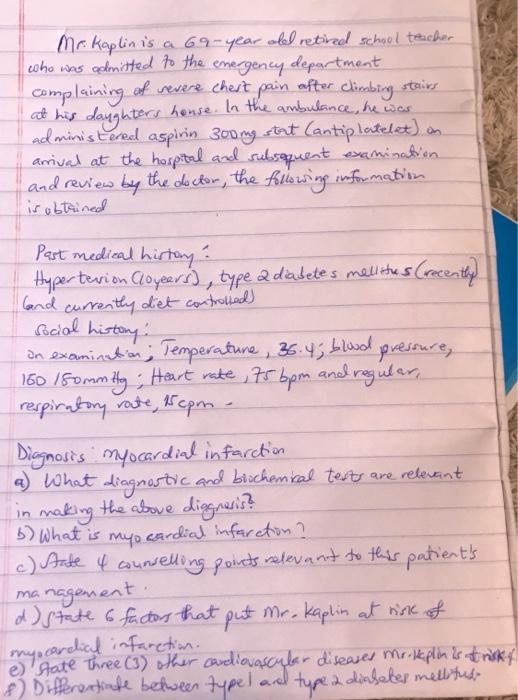 Mr. Kaplin is a 69-year old retired school teacher
who was admitted to the emergency department
complaining of severe chest pain after climbing stairs
at his daughters house. In the ambulance, he was
administered aspirin 300mg stat (antiplatelet) on
arrival at the hospital and subsequent examination
and review by the doctor, the following information
is obtained
Past medical history:
Hypertension (10years), type 2 diabetes mellitus (recently)
(and currently diet controlled)
Social history:
on examination; Temperature, 36.4; blood pressure,
150/80mmHg; Heart rate, 75 bpm and regular,
respiratory rate, 15cpm -
Diagnosis: myocardial infarction
a) What diagnostic and biochemical tests are relevant
in making the above diagnosis?
b) What is myocardial infarction?
c) State 4 counselling points relevant to this patient's
management.
d) state 6 factors that put Mr. Kaplin at risk of
myocardial infarction.
e) State three (3) other cardiovascular diseases Mr. Kaplin is at risk of
f) Differentiate between type 1 and type 2 diabetes mellitus.